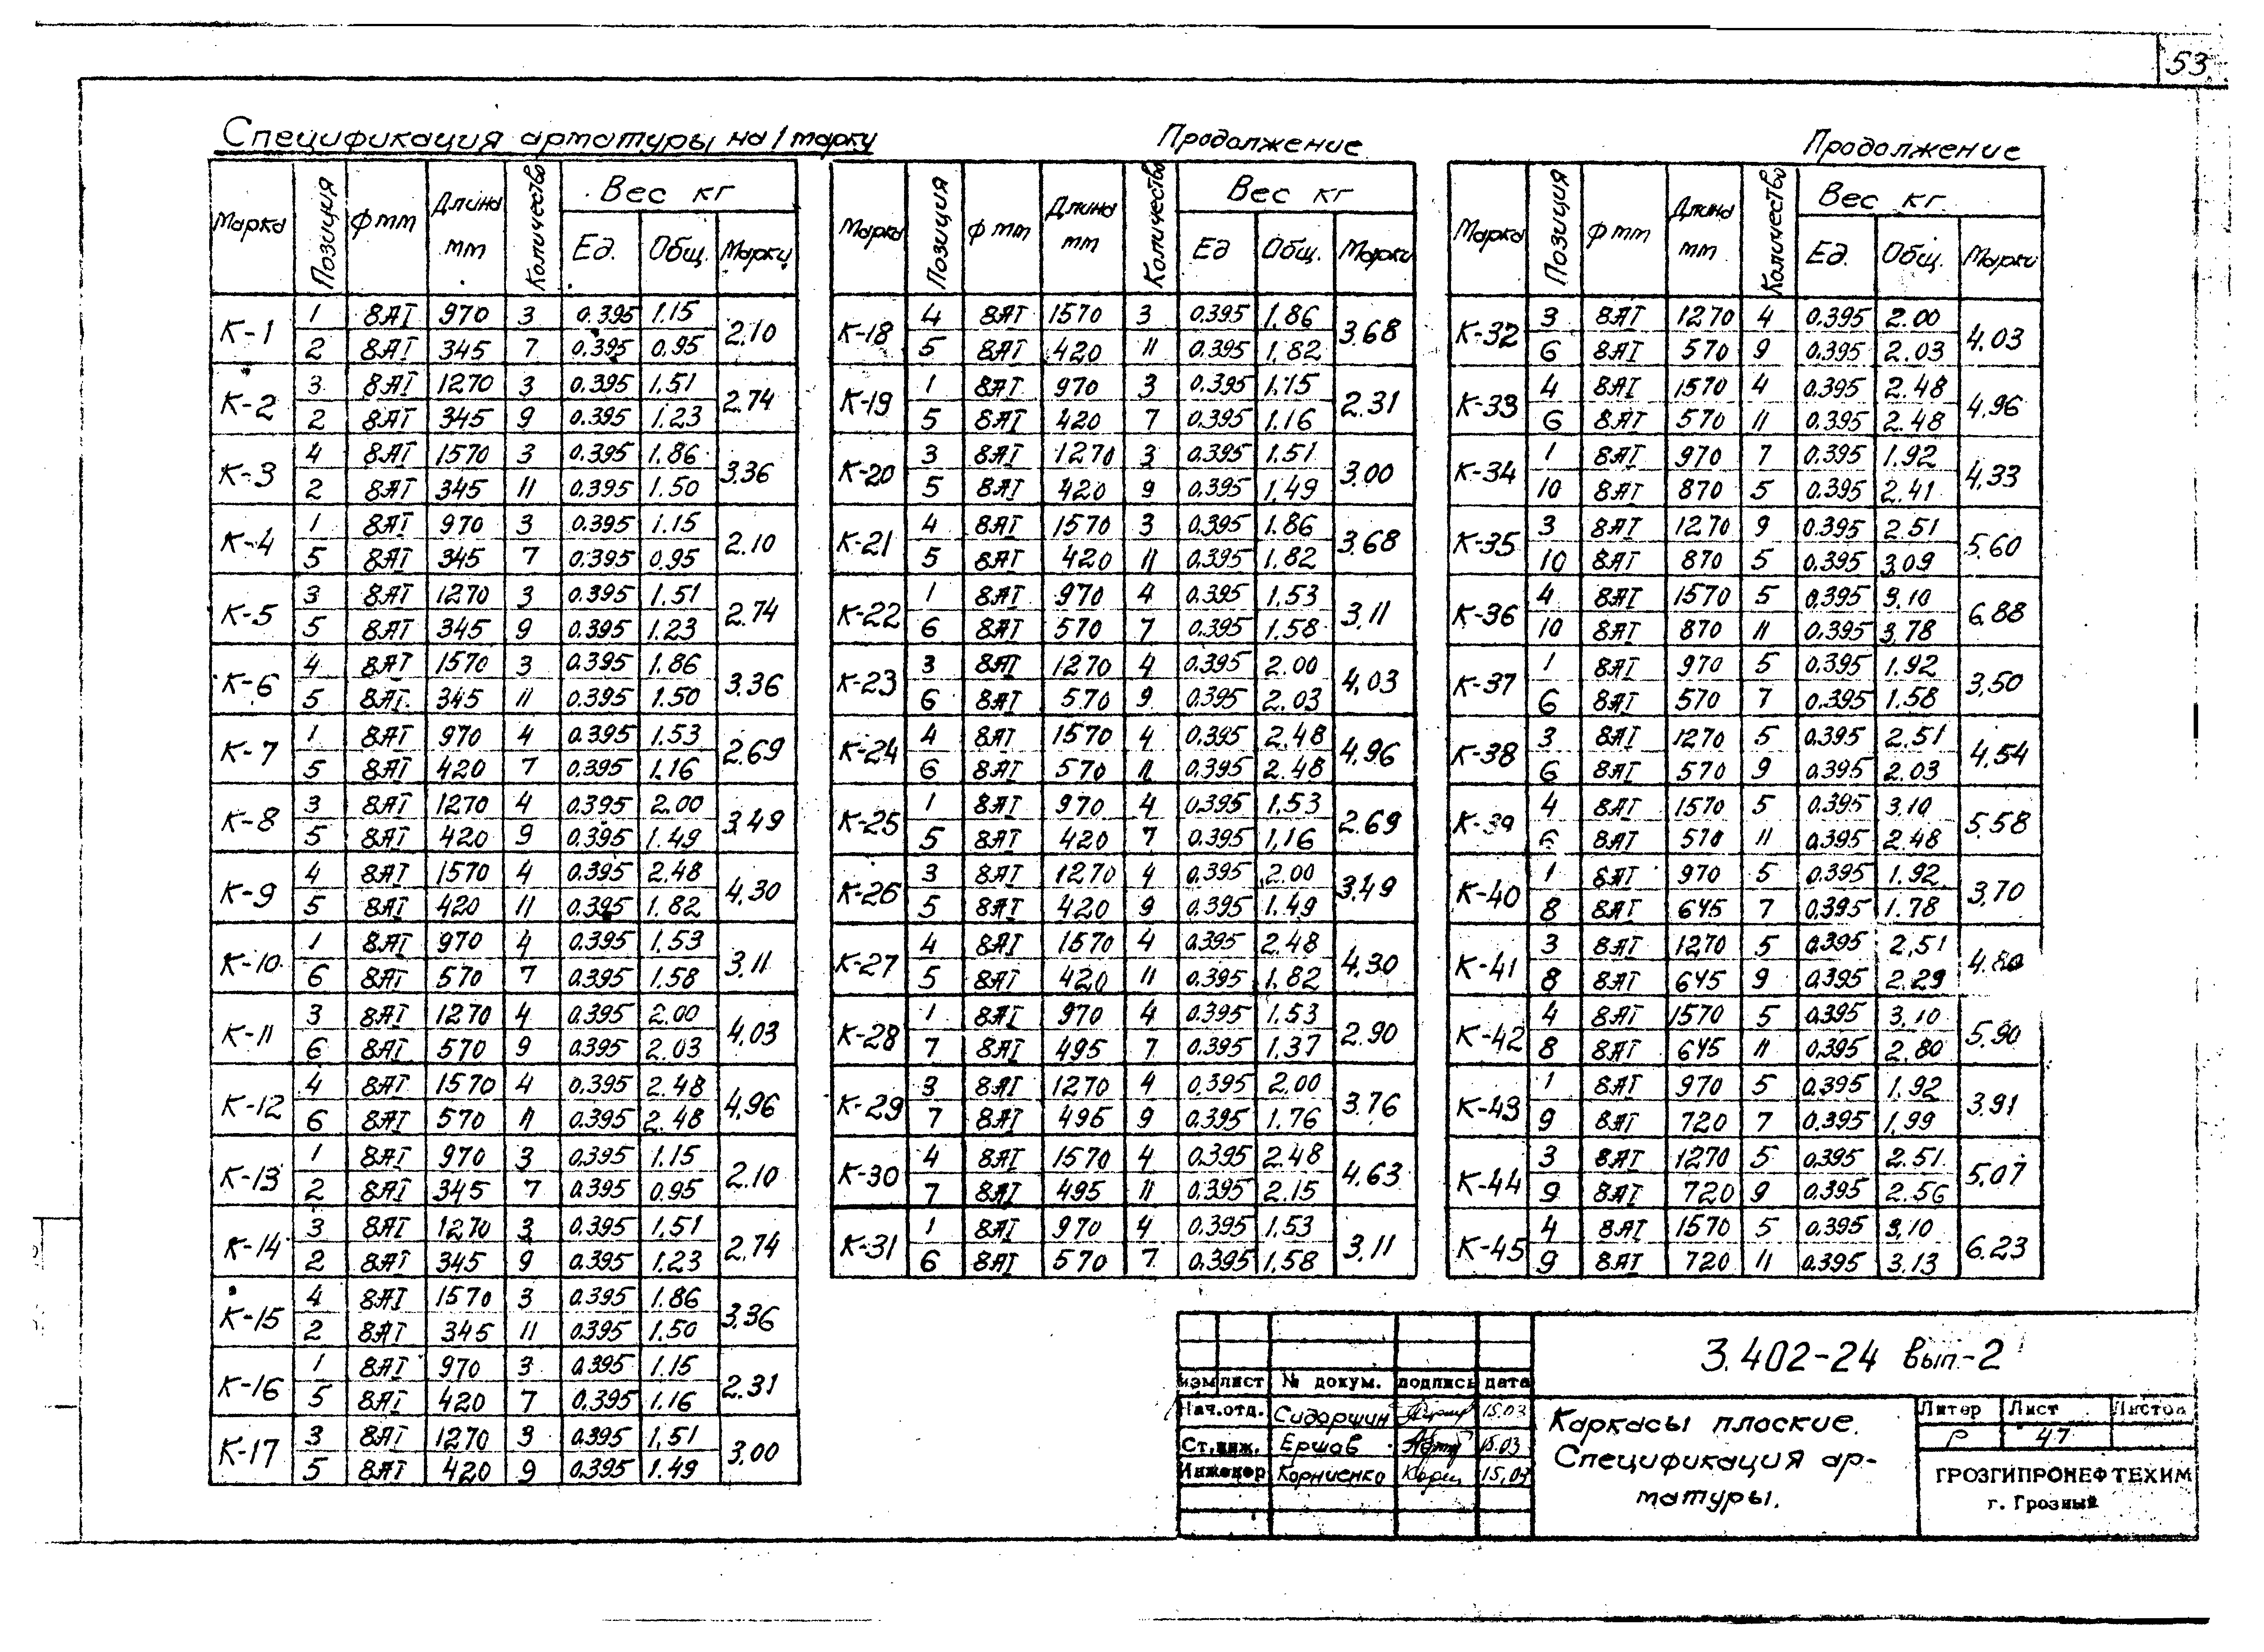 53
Спецификация арматуры на 1 марку
Марка Позиция ф мм Длина мм Количество Вес кг
Ед. Общ. Марки
К-1 1 8АI 970 3 0.395 1.15 2.10
2 8АI 345 7 0.395 0.95
К-2 3 8АI 1270 3 0.395 1.51 2.74
2 8АI 345 9 0.395 1.23
К-3 4 8АI 1570 3 0.395 1.86 3.36
2 8АI 345 11 0.395 1.50
К-4 1 8АI 970 3 0.395 1.15 2.10
5 8АI 345 7 0.395 0.95
К-5 3 8АI 1270 3 0.395 1.51 2.74
5 8АI 345 9 0.395 1.23
К-6 4 8АI 1570 3 0.395 1.86 3.36
5 8АI 345 11 0.395 1.50
К-7 1 8АI 970 4 0.395 1.53 2.69
5 8АI 420 7 0.395 1.16
К-8 3 8АI 1270 4 0.395 2.00 3.49
5 8АI 420 9 0.395 1.49
К-9 4 8АI 1570 4 0.395 2.48 4.30
5 8АI 420 11 0.395 1.82
К-10 1 8АI 970 4 0.395 1.53 3.11
6 8АI 570 7 0.395 1.58
К-11 3 8АI 1270 4 0.395 2.00 4.03
6 8АI 570 9 0.395 2.03
К-12 4 8АI 1570 4 0.395 2.48 4.96
6 8АI 570 11 0.395 2.48
К-13 1 8АI 970 3 0.395 1.15 2.10
2 8АI 345 7 0.395 0.95
К-14 3 8АI 1270 3 0.395 1.51 2.74
2 8АI 345 9 0.395 1.23
К-15 4 8АI 1570 3 0.395 1.86 3.36
2 8АI 345 11 0.395 1.50
К-16 1 8АI 970 3 0.395 1.15 2.31
5 8АI 420 7 0.395 1.16
К-17 3 8АI 1270 3 0.395 1.51 3.00
5 8АI 420 9 0.395 1.49
Продолжение
Марка Позиция ф мм Длина мм Количество Вес кг
Ед Общ. Марки
К-18 4 8АI 1570 3 0.395 1.86 3.68
5 8АI 420 11 0.395 1.82
К-19 1 8АI 970 3 0.395 1.15 2.31
5 8АI 420 7 0.395 1.16
К-20 3 8АI 1270 3 0.395 1.51 3.00
5 8АI 420 9 0.395 1.49
К-21 4 8АI 1570 3 0.395 1.86 3.68
5 8АI 420 11 0.395 1.82
К-22 1 8АI 970 4 0.395 1.53 3.11
6 8АI 570 7 0.395 1.58
К-23 3 8АI 1270 4 0.395 2.00 4.03
6 8АI 570 9 0.395 2.03
К-24 4 8АI 1570 4 0.395 2.48 4.96
6 8АI 570 11 0.395 2.48
К-25 1 8АI 970 4 0.395 1.53 2.69
5 8АI 420 7 0.395 1.16
К-26 3 8АI 1270 4 0.395 2.00 3.49
5 8АI 420 9 0.395 1.49
К-27 4 8АI 1570 4 0.395 2.48 4.30
5 8АI 420 11 0.395 1.82
К-28 1 8АI 970 4 0.395 1.53 2.90
7 8АI 495 7 0.395 1.37
К-29 3 8АI 1270 4 0.395 2.00 3.76
7 8АI 495 9 0.395 1.76
К-30 4 8АI 1570 4 0.395 2.48 4.63
7 8АI 495 11 0.395 2.15
К-31 1 8АI 970 4 0.395 1.53 3.11
6 8АI 570 7 0.395 1.58
Продолжение
Марка Позиция ф мм Длина мм Количество Вес кг
Ед. Общ. Марки
К-32 3 8АI 1270 4 0.395 2.00 4.03
6 8АI 570 9 0.395 2.03
К-33 4 8АI 1570 4 0.395 2.48 4.96
6 8АI 570 11 0.395 2.48
К-34 1 8АI 970 7 0.395 1.92 4.33
10 8АI 870 5 0.395 2.41
К-35 3 8АI 1270 9 0.395 2.51 5.60
10 8АI 870 5 0.395 3.09
К-36 4 8АI 1570 5 0.395 3.10 6.88
10 8АI 870 11 0.395 3.78
К-37 1 8АI 970 5 0.395 1.92 3.50
6 8АI 570 7 0.395 1.58
К-38 3 8АI 1270 5 0.395 2.51 4.54
6 8АI 570 9 0.395 2.03
К-39 4 8АI 1570 5 0.395 3.10 5.58
6 8АI 570 11 0.395 2.48
К-40 1 8АI 970 5 0.395 1.92 3.70
8 8АI 645 7 0.395 1.78
К-41 3 8АI 1270 5 0.395 2.51 4.80
8 8АI 645 9 0.395 2.29
К-42 4 8АI 1570 5 0.395 3.10 5.90
8 8АI 645 11 0.395 2.80
К-43 1 8АI 970 5 0.395 1.92 3.91
9 8АI 720 7 0.395 1.99
К-44 3 8АI 1270 5 0.395 2.51 5.07
9 8АI 720 9 0.395 2.56
К-45 4 8АI 1570 5 0.395 3.10 6.23
9 8АI 720 11 0.395 3.13
3.402-24 вып.-2
изм лист № докум. подпись дата
Нач.отд. Сидоршин 15.03
Ст.инж. Ершов 15.03
Инженер Корниенко 15.03
Каркасы плоские.
Спецификация ар-
матуры.
Литер Лист Листов
Р 47
ГРОЗГИПРОНЕФТЕХИМ
г. Грозный